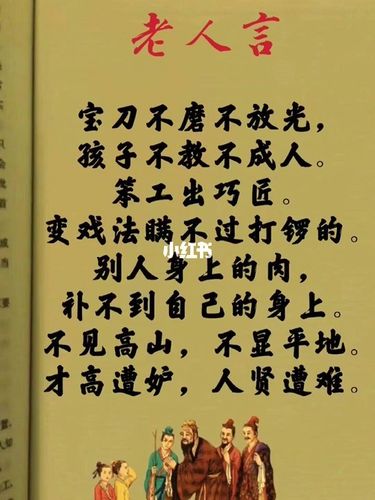 老人言
宝刀不磨不放光，
孩子不教不成人。
笨工出巧匠。
变戏法瞒不过打锣的。
小红书
别人身上的肉，
补不到自己的身上。
不见高山，不显平地。
才高遭妒，人贤遭难。